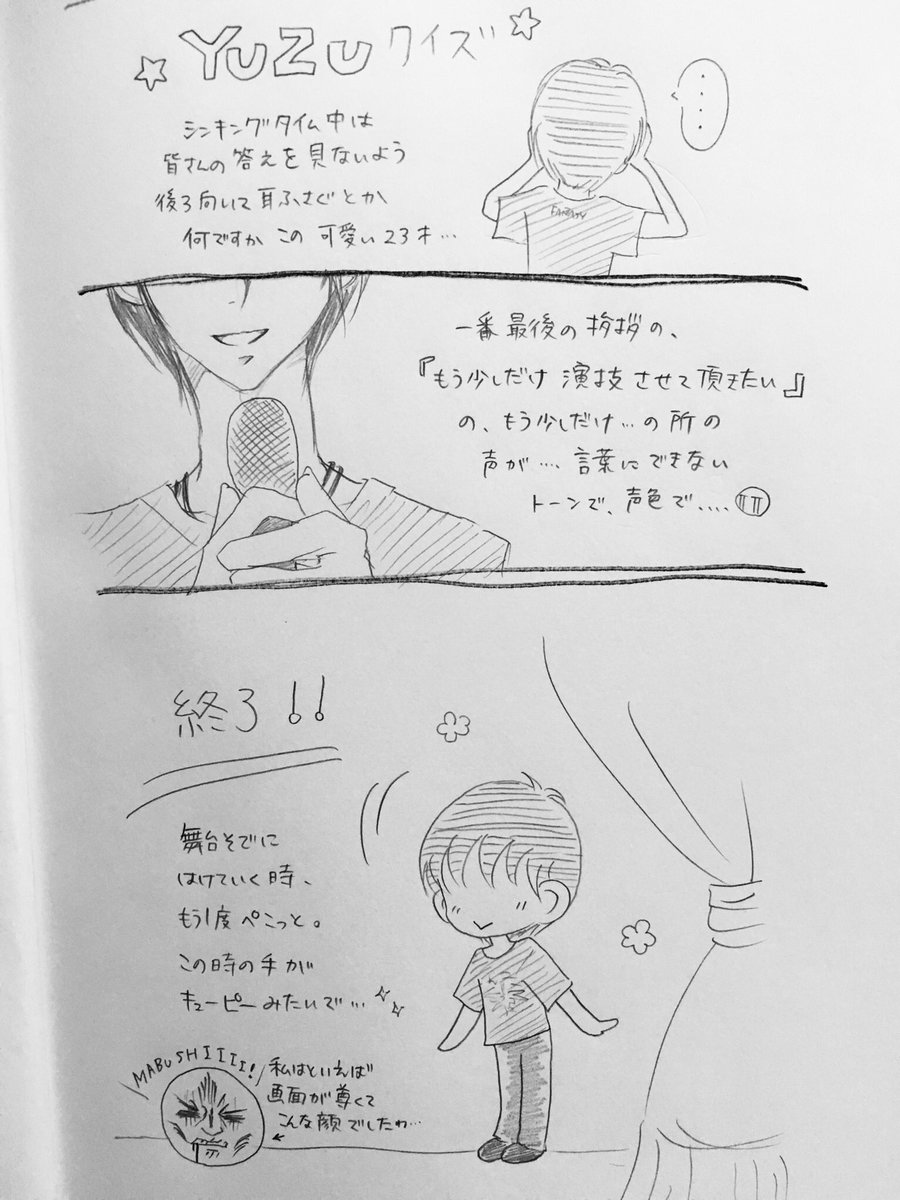 YUZU クイズ
・・・・
シンキングタイム中は
皆さんの答えを見ないよう
後ろ向いて耳ふさぐとか
何ですか この 可愛い23才…
FANTASY
一番最後の挨拶の、
『もう少しだけ 演技させて頂きたい』
の、もう少しだけ…の所の
声が…. 言葉にできない
トーンで、声色で….. 
終了!!
舞台そでに
はけていく時、
もう1度ぺこっと。
この時の手が
キューピーみたいで…
MABUSHIIII!
私はといえば
画面が尊くて
こんな顔でしたわ…